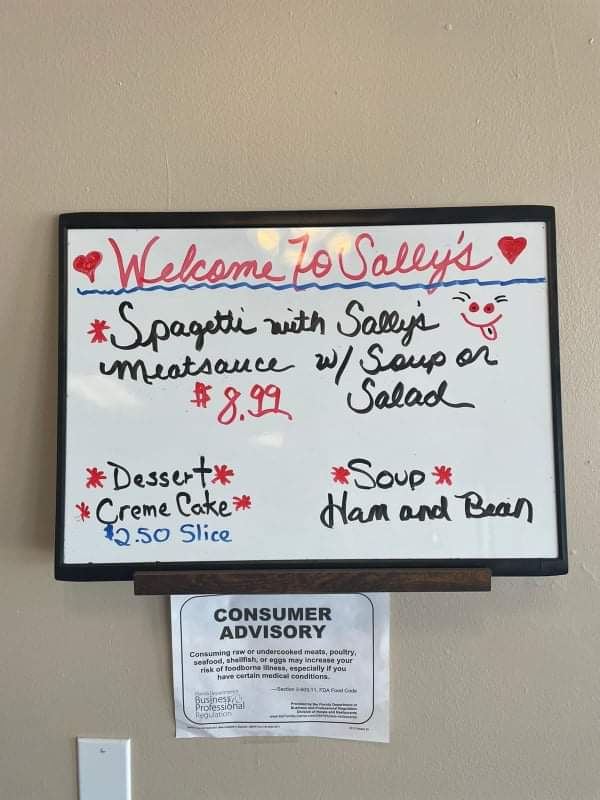 Welcome To Sally's
*Spagetti with Sally's
meatsauce w/ Soup or
$8.99 Salad
*Dessert*
*Creme Cake*
$2.50 Slice
*Soup*
Ham and Bean
CONSUMER
ADVISORY
Consuming raw or undercooked meats, poultry,
seafood, shellfish, or eggs may increase your
risk of foodborne illness, especially if you
have certain medical conditions.
—Section 3-603.11, FDA Food Code
Florida Department of
Business
Professional
Regulation
Provided by the Florida Department of
Business and Professional Regulation
Division of Hotels and Restaurants